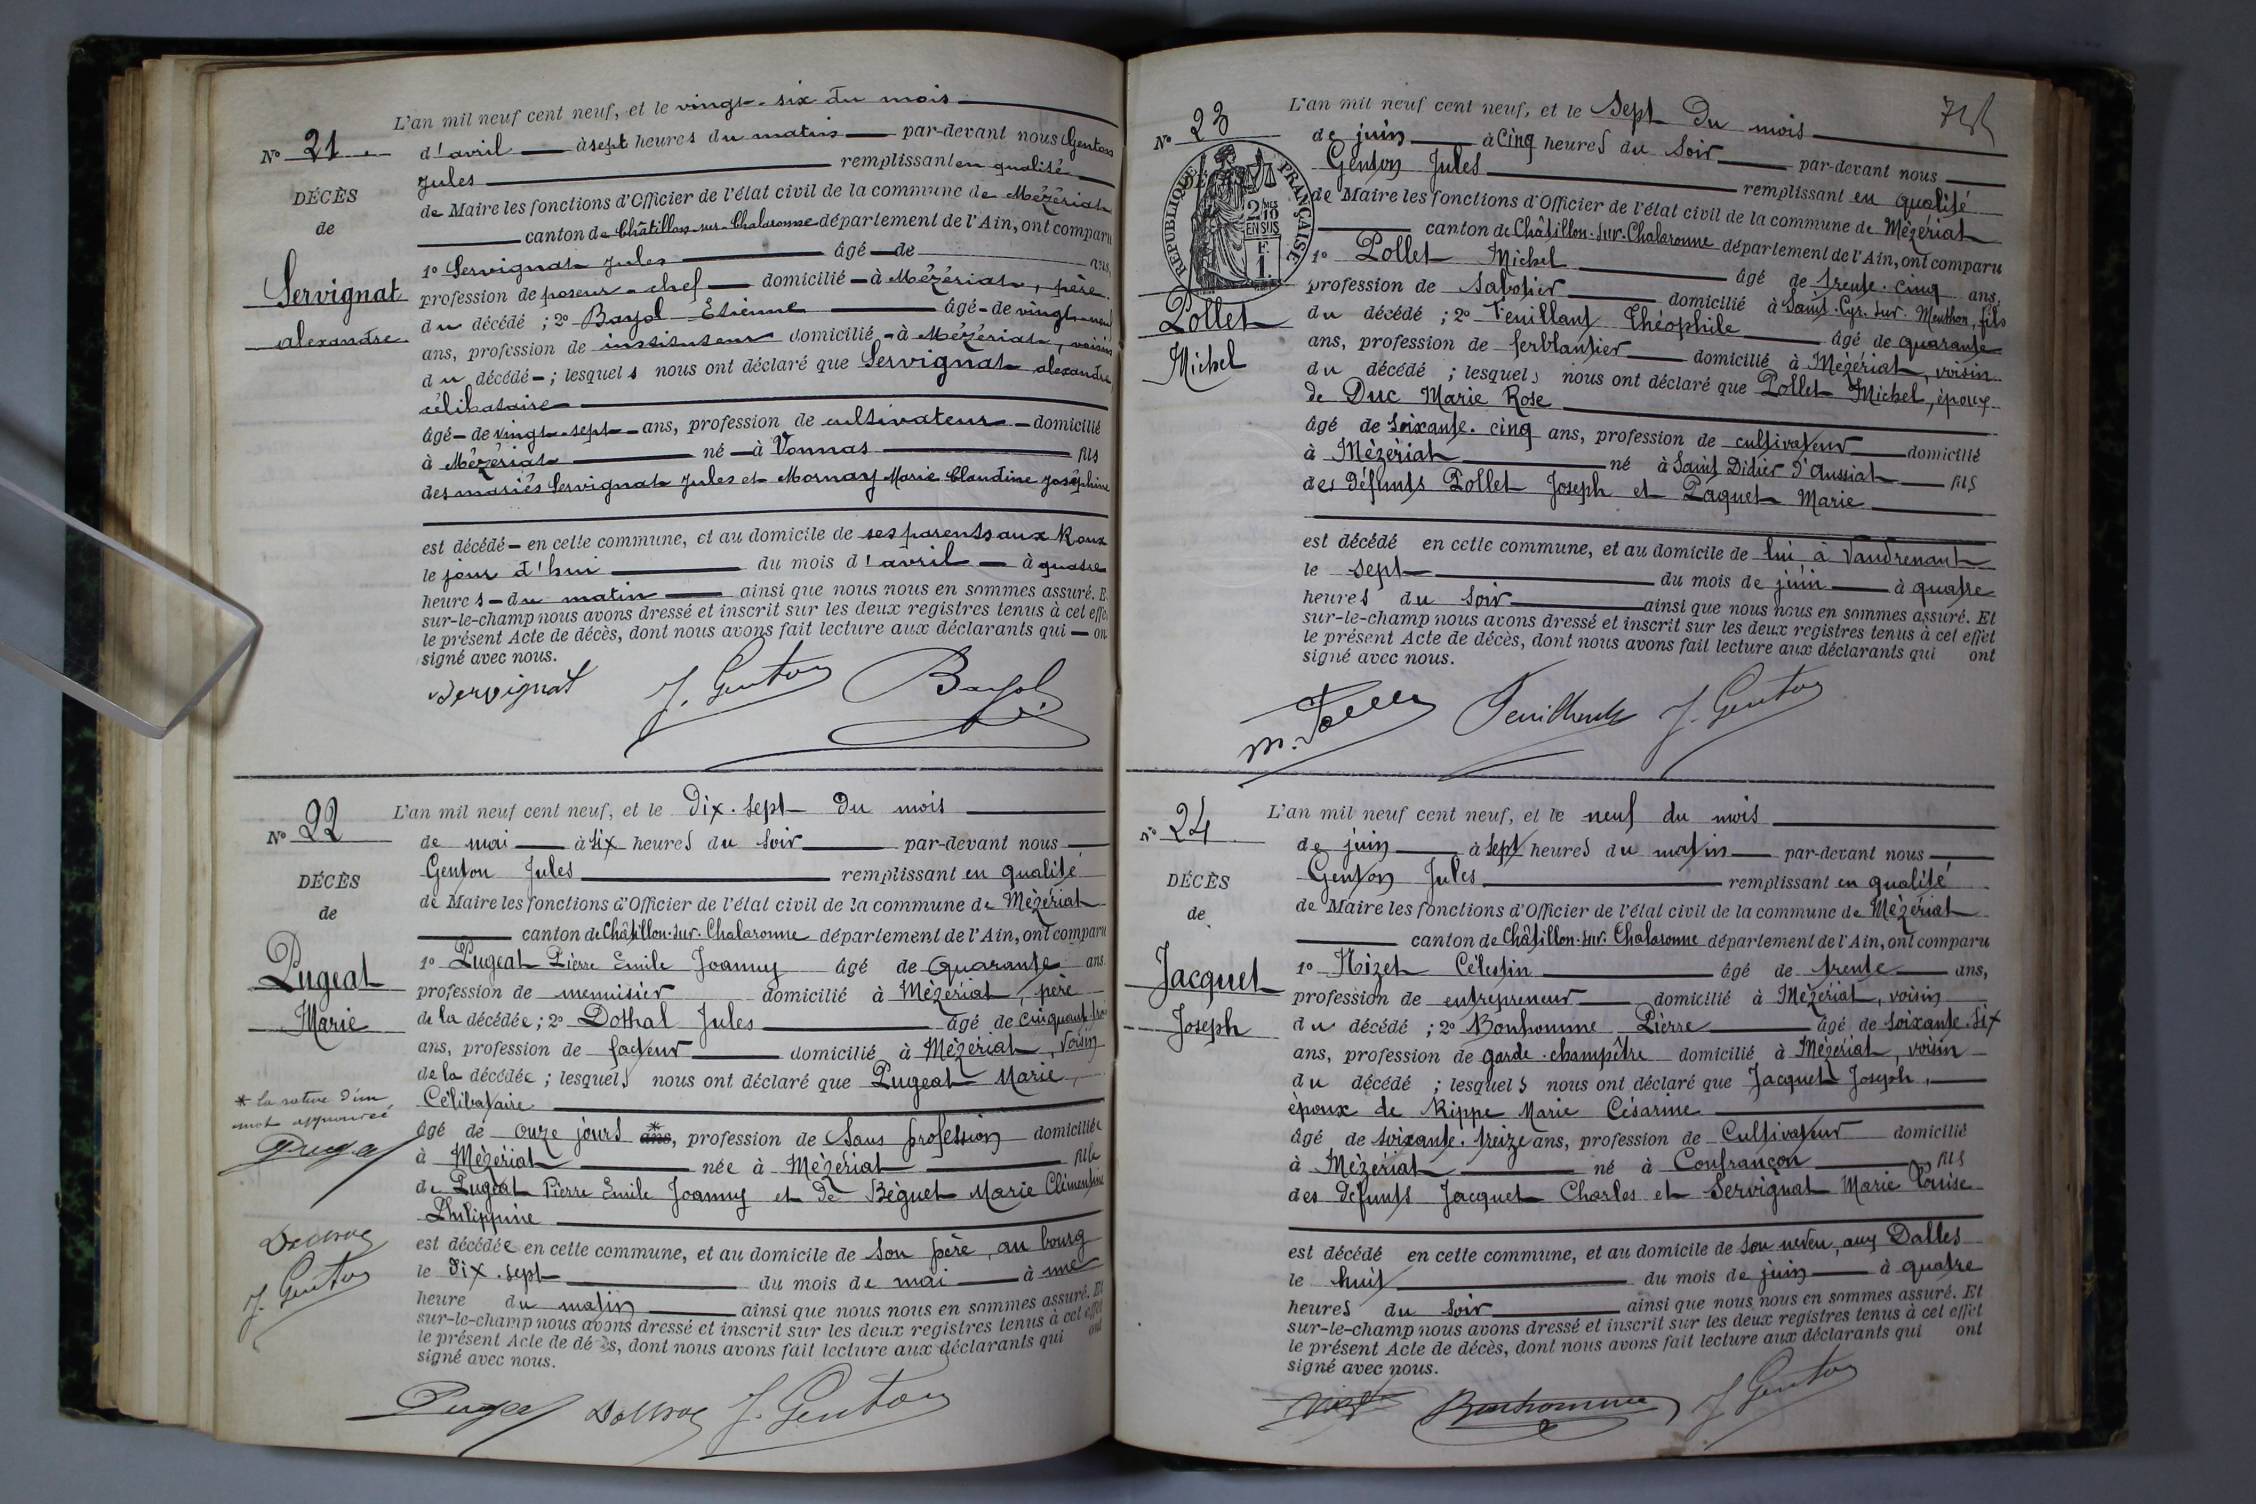 L'an mil neuf cent neuf, et le vingt-six du mois
N° 21
d'avril à sept heures du matin par-devant nous Genton
Jules remplissant en qualité
DÉCÈS
de Maire les fonctions d'Officier de l'état civil de la commune de Mézériat
de
canton de Châtillon-sur-Chalaronne département de l'Ain, ont comparu
1° Servignat Jules âgé de ans,
Servignat
profession de poseur-chef domicilié à Mézériat, père
du décédé ; 2° Bayol Etienne âgé de vingt-neuf
alexandre
ans, profession de instituteur domicilié à Mézériat, voisin
du décédé ; lesquels nous ont déclaré que Servignat alexandre
célibataire
âgé de vingt-sept ans, profession de cultivateur domicilié
à Mézériat né à Vonnas fils
des mariés Servignat Jules et Mornay Marie Claudine Joséphine
est décédé en cette commune, et au domicile de ses parents aux Roux
le jour d'hui du mois d'avril à quatre
heures du matin ainsi que nous nous en sommes assuré. E
sur-le-champ nous avons dressé et inscrit sur les deux registres tenus à cet effe
le présent Acte de décès, dont nous avons fait lecture aux déclarants qui on
signé avec nous.
Servignat J. Genton Bayol
L'an mil neuf cent neuf, et le Dix-sept du mois
N° 22
de mai à six heures du soir par-devant nous
Genton Jules remplissant en qualité
DÉCÈS
de Maire les fonctions d'Officier de l'état civil de la commune de Mézériat
de
canton de Châtillon-sur-Chalaronne département de l'Ain, ont comparu
Pugeat
1° Pugeat Pierre Emile Joanny âgé de Quarante ans
profession de menuisier domicilié à Mézériat, père
Marie
de la décédée ; 2° Dothal Jules âgé de cinquante tro
ans, profession de facteur domicilié à Mézériat, voisin
de la décédée ; lesquels nous ont déclaré que Pugeat Marie,
Célibataire
* la rature d'un
mot approuvée
âgé de onze jours ans*, profession de Sans profession domiciliée
à Mézériat née à Mézériat fille
de Pugeat Pierre Emile Joanny et de Béguet Marie Clémentine
Philippine
est décédée en cette commune, et au domicile de son père, au bourg
le Dix-sept du mois de mai à une
J. Genton
heure du matin ainsi que nous nous en sommes assuré. Et
sur-le-champ nous avons dressé et inscrit sur les deux registres tenus à cet effet
le présent Acte de décès, dont nous avons fait lecture aux déclarants qui ont
signé avec nous.
J. Genton
L'an mil neuf cent neuf, et le Sept Du mois
N° 23
de juin à Cinq heures du soir par-devant nous
Genton Jules remplissant en qualité
RÉPUBLIQUE FRANÇAISE
2 MES
10
EN SUS
F.
1.
de Maire les fonctions d'Officier de l'état civil de la commune de Mézériat
canton de Châtillon-sur-Chalaronne département de l'Ain, ont comparu
1° Pollet Michel âgé de trente-cinq ans,
profession de sabotier domicilié à Saint-Cyr-sur-Menthon, fils
Pollet
du décédé ; 2° Feuillant Théophile âgé de quarante
Michel
ans, profession de ferblantier domicilié à Mézériat, voisin
du décédé ; lesquels nous ont déclaré que Pollet Michel, époux
de Duc Marie Rose
âgé de soixante-cinq ans, profession de cultivateur domicilié
à Mézériat né à Saint Didier d'Aussiat fils
des défunts Pollet Joseph et Paquet Marie
est décédé en cette commune, et au domicile de lui à Vaudrenant
le sept du mois de juin à quatre
heures du soir ainsi que nous nous en sommes assuré. Et
sur-le-champ nous avons dressé et inscrit sur les deux registres tenus à cet effet
le présent Acte de décès, dont nous avons fait lecture aux déclarants qui ont
signé avec nous.
M. Pollet Feuillant J. Genton
L'an mil neuf cent neuf, et le neuf du mois
N° 24
de juin à sept heures du matin par-devant nous
Genton Jules remplissant en qualité
DÉCÈS
de Maire les fonctions d'Officier de l'état civil de la commune de Mézériat
de
canton de Châtillon-sur-Chalaronne département de l'Ain, ont comparu
Jacquet
1° Nizet Célestin âgé de trente ans,
profession de entrepreneur domicilié à Mézériat, voisin
Joseph
du décédé ; 2° Bonhomme Pierre âgé de soixante-six
ans, profession de garde-champêtre domicilié à Mézériat, voisin
du décédé ; lesquels nous ont déclaré que Jacquet Joseph,
époux de Rippe Marie Césarine
âgé de soixante-treize ans, profession de Cultivateur domicilié
à Mézériat né à Confrançon fils
des défunts Jacquet Charles et Servignat Marie Louise
est décédé en cette commune, et au domicile de son neveu, aux Dalles
le huit du mois de juin à quatre
heures du soir ainsi que nous nous en sommes assuré. Et
sur-le-champ nous avons dressé et inscrit sur les deux registres tenus à cet effet
le présent Acte de décès, dont nous avons fait lecture aux déclarants qui ont
signé avec nous.
Nizet Bonhomme J. Genton